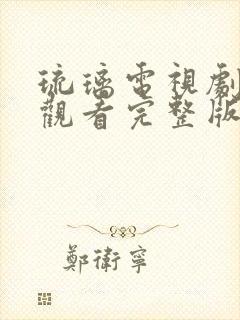 琉璃電視劇
觀看完整版
鄭衛寧